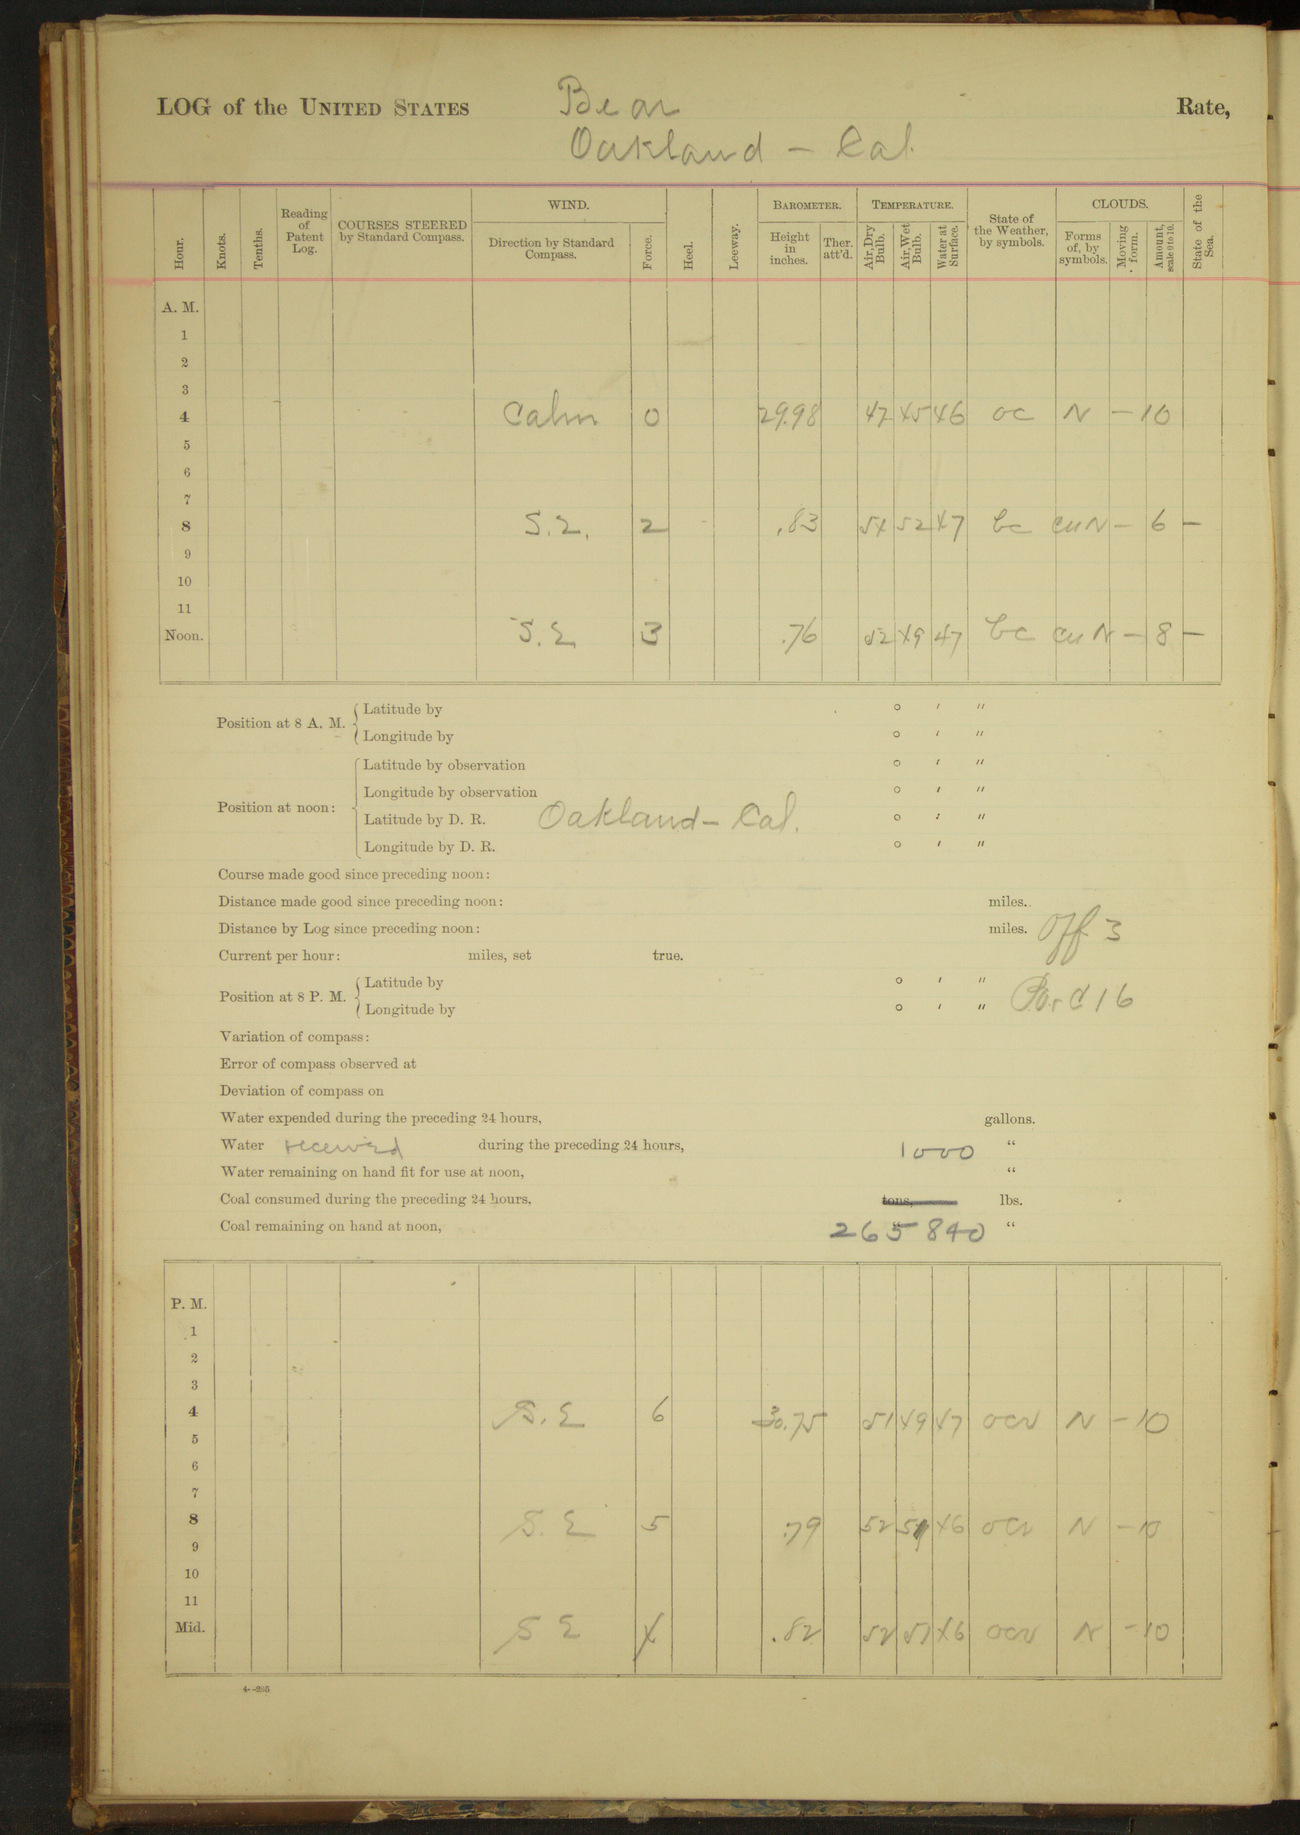 LOG of the UNITED STATES Bear Rate,
Oakland - Cal.
Hour. Knots. Tenths. Reading of Patent Log. COURSES STEERED by Standard Compass. WIND. Direction by Standard Compass. Force. Heel. Leeway. BAROMETER. Height in inches. Ther. att'd. TEMPERATURE. Air, Dry Bulb. Air, Wet Bulb. Water at Surface. State of the Weather, by symbols. CLOUDS. Forms of, by symbols. Moving form. Amount, scale 0 to 10. State of the Sea.
A. M.
1
2
3
4 Calm 0 29.98 47 45 46 oc N - 10
5
6
7
8 S.E. 2 .83 54 52 47 bc cuN - 6 -
9
10
11
Noon. S.E 3 .76 52 49 47 bc cuN - 8 -
Position at 8 A. M. Latitude by ° ′ ″
Longitude by ° ′ ″
Position at noon: Latitude by observation ° ′ ″
Longitude by observation ° ′ ″
Latitude by D. R. Oakland - Cal. ° ′ ″
Longitude by D. R. ° ′ ″
Course made good since preceding noon:
Distance made good since preceding noon: miles.
Distance by Log since preceding noon: miles. Off 3
Current per hour: miles, set true.
Position at 8 P. M. Latitude by ° ′ ″
Longitude by ° ′ ″ 16
Variation of compass:
Error of compass observed at
Deviation of compass on
Water expended during the preceding 24 hours, gallons.
Water received during the preceding 24 hours, 1000 "
Water remaining on hand fit for use at noon, "
Coal consumed during the preceding 24 hours, tons, lbs.
Coal remaining on hand at noon, 265840 "
P. M.
1
2
3
4 S.E 6 30.75 51 49 47 ocr N - 10
5
6
7
8 S.E 5 .79 52 51 46 ocr N - 10
9
10
11
Mid. S E 4 .82 52 51 46 ocr N - 10
4--295